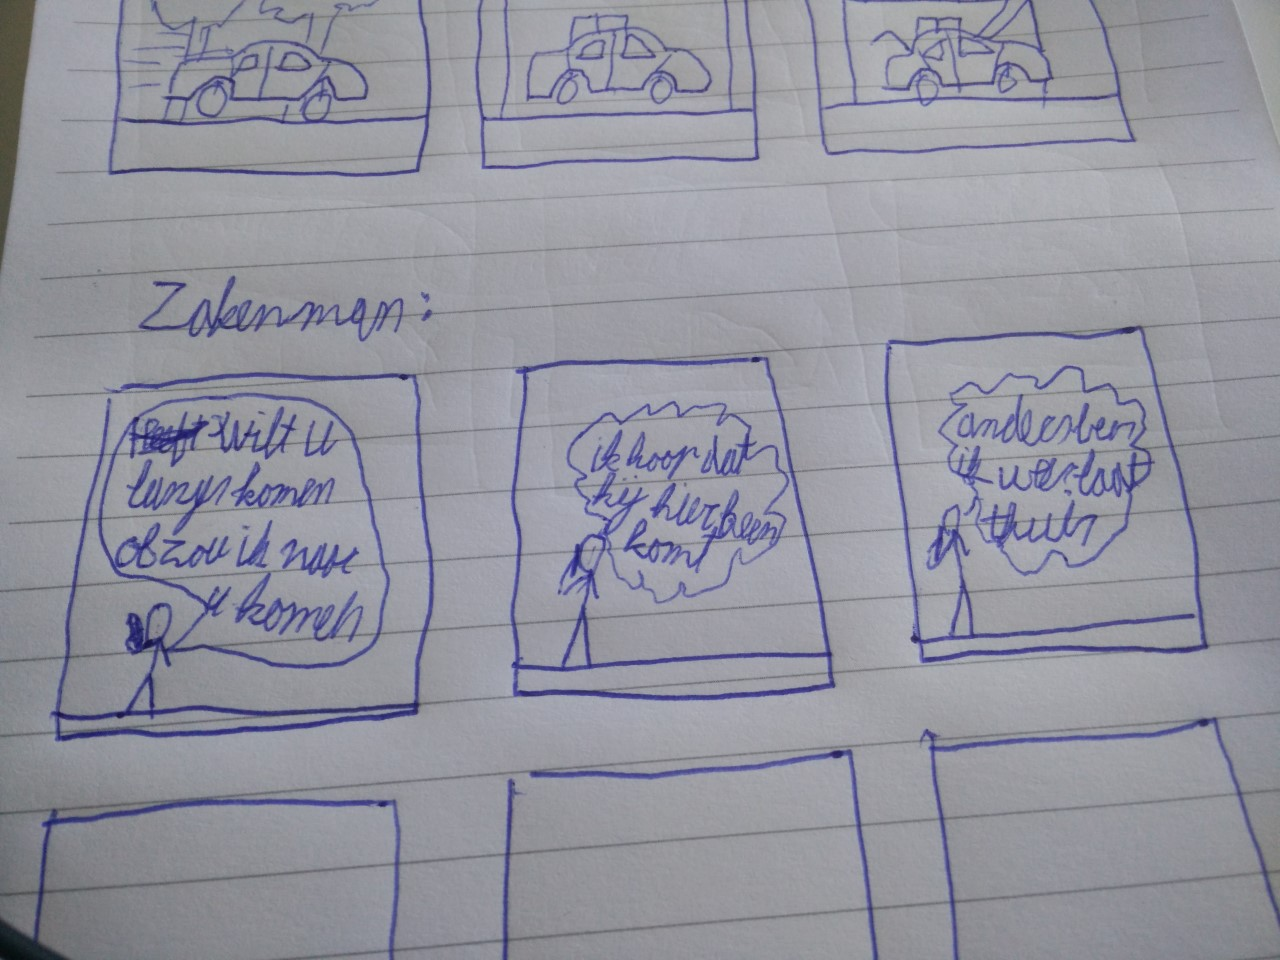 Zakenman:
Wilt u
langs komen
of zou ik naar
u komen
ik hoop dat
hij hier heen
komt
anders ben
ik weer laat
thuis